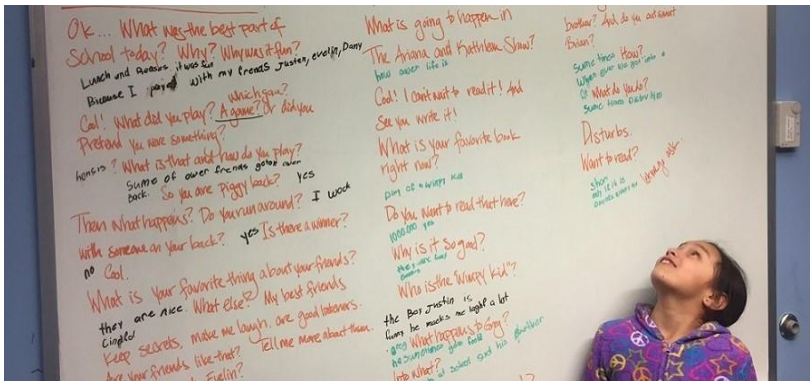 Ok... What was the best part of
School today? Why? Why was it fun?
Lunch and it was fun
Bicause I with my frends Justen, Evelin, Dany
which game?
Cool! What did you play? A game? Or did you
Pretend you were something?
? What is that and how do you play?
Sume of ower frends on ower
back. So you are piggy back? yes
Then what happens? Do you run around? I
with someone on your back? yes Is there a winner?
no Cool.
What is your favorite thing about your friends?
they are nice. What else? My best friends
Keep secrets, make me laugh, are good listeners.
Are your friends like that? Tell me more about them.
Evelin?
What is going to happen in
The Ariana and Kathleen Show?
how ower life is
Cool! I can't wait to read it! And
See you write it!
What is your favorite book
right now?
of a wimpy kid
Do you want to read that here?
1000,000 yes
Why is it so good?
Who is the "Wimpy kid"?
the Boy Justin is
funy he macks me a lot
What happens to Greg?
he sumetimes gets
Into What?
at scholl and his
brother? And do you out smart
Brian?
sume times How?
When ever we get into a
What do you do?
Sume times Disturbs
Disturbs.
Want to read?